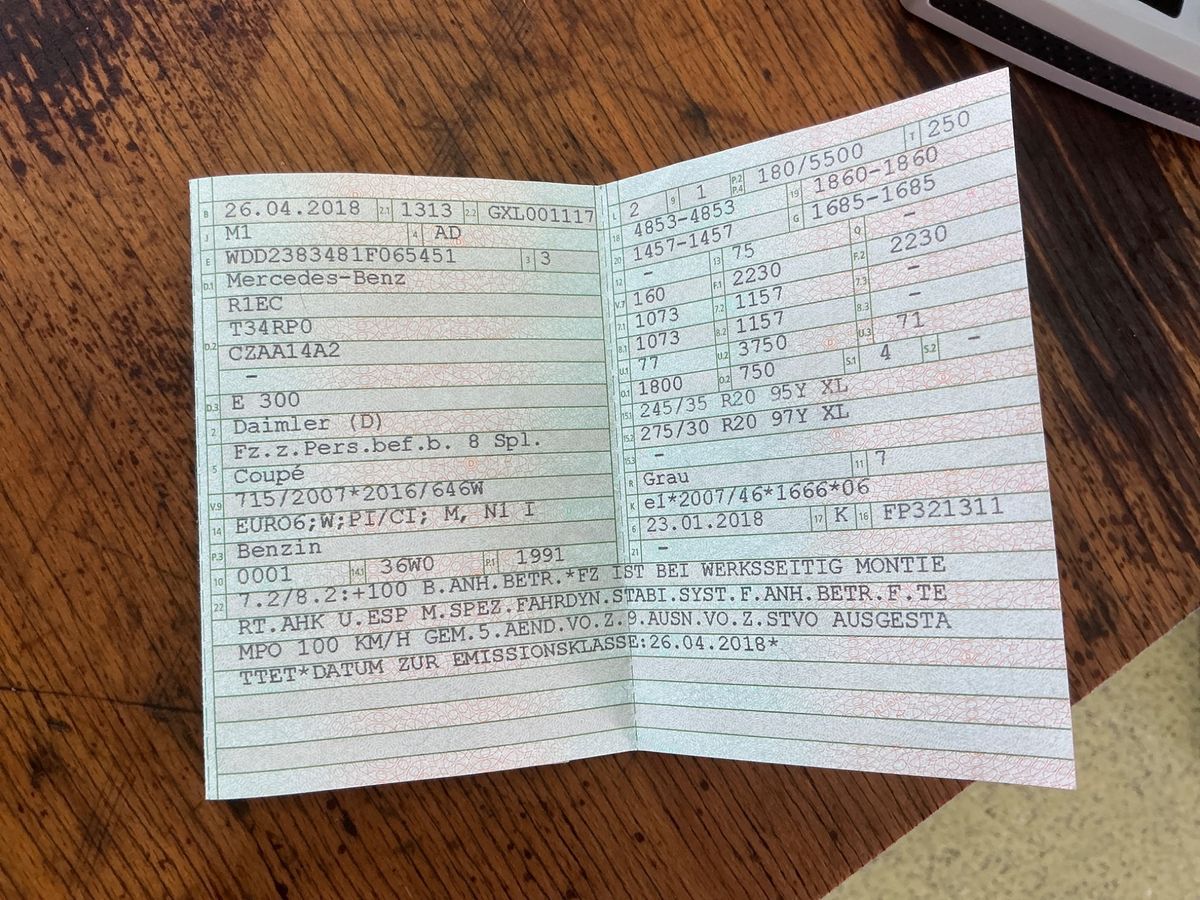 B 26.04.2018 2.1 1313 2.2 GXL001117
J M1 4 AD
E WDD2383481F065451 3 3
D.1 Mercedes-Benz
R1EC
T34RP0
D.2 CZAA14A2
–
D.3 E 300
2 Daimler (D)
Fz.z.Pers.bef.b. 8 Spl.
5 Coupé
V.9 715/2007*2016/646W
14 EURO6;W;PI/CI; M, N1 I
P.3 Benzin
10 0001 14.1 36W0 P.1 1991
L 2 9 1 P.2 P.4 180/5500 T 250
18 4853-4853 19 1860-1860
20 1457-1457 G 1685-1685
12 – 13 75 Q –
V.7 160 F.1 2230 F.2 2230
7.1 1073 7.2 1157 7.3 –
8.1 1073 8.2 1157 8.3 –
U.1 77 U.2 3750 U.3 71
O.1 1800 O.2 750 S.1 4 S.2 –
15.1 245/35 R20 95Y XL
15.2 275/30 R20 97Y XL
15.3 –
R Grau 11 7
K e1*2007/46*1666*06
6 23.01.2018 17 K 16 FP321311
21 –
22 7.2/8.2:+100 B.ANH.BETR.*FZ IST BEI WERKSSEITIG MONTIE
RT.AHK U.ESP M.SPEZ.FAHRDYN.STABI.SYST.F.ANH.BETR.F.TE
MPO 100 KM/H GEM.5.AEND.VO.Z.9.AUSN.VO.Z.STVO AUSGESTA
TTET*DATUM ZUR EMISSIONSKLASSE:26.04.2018*